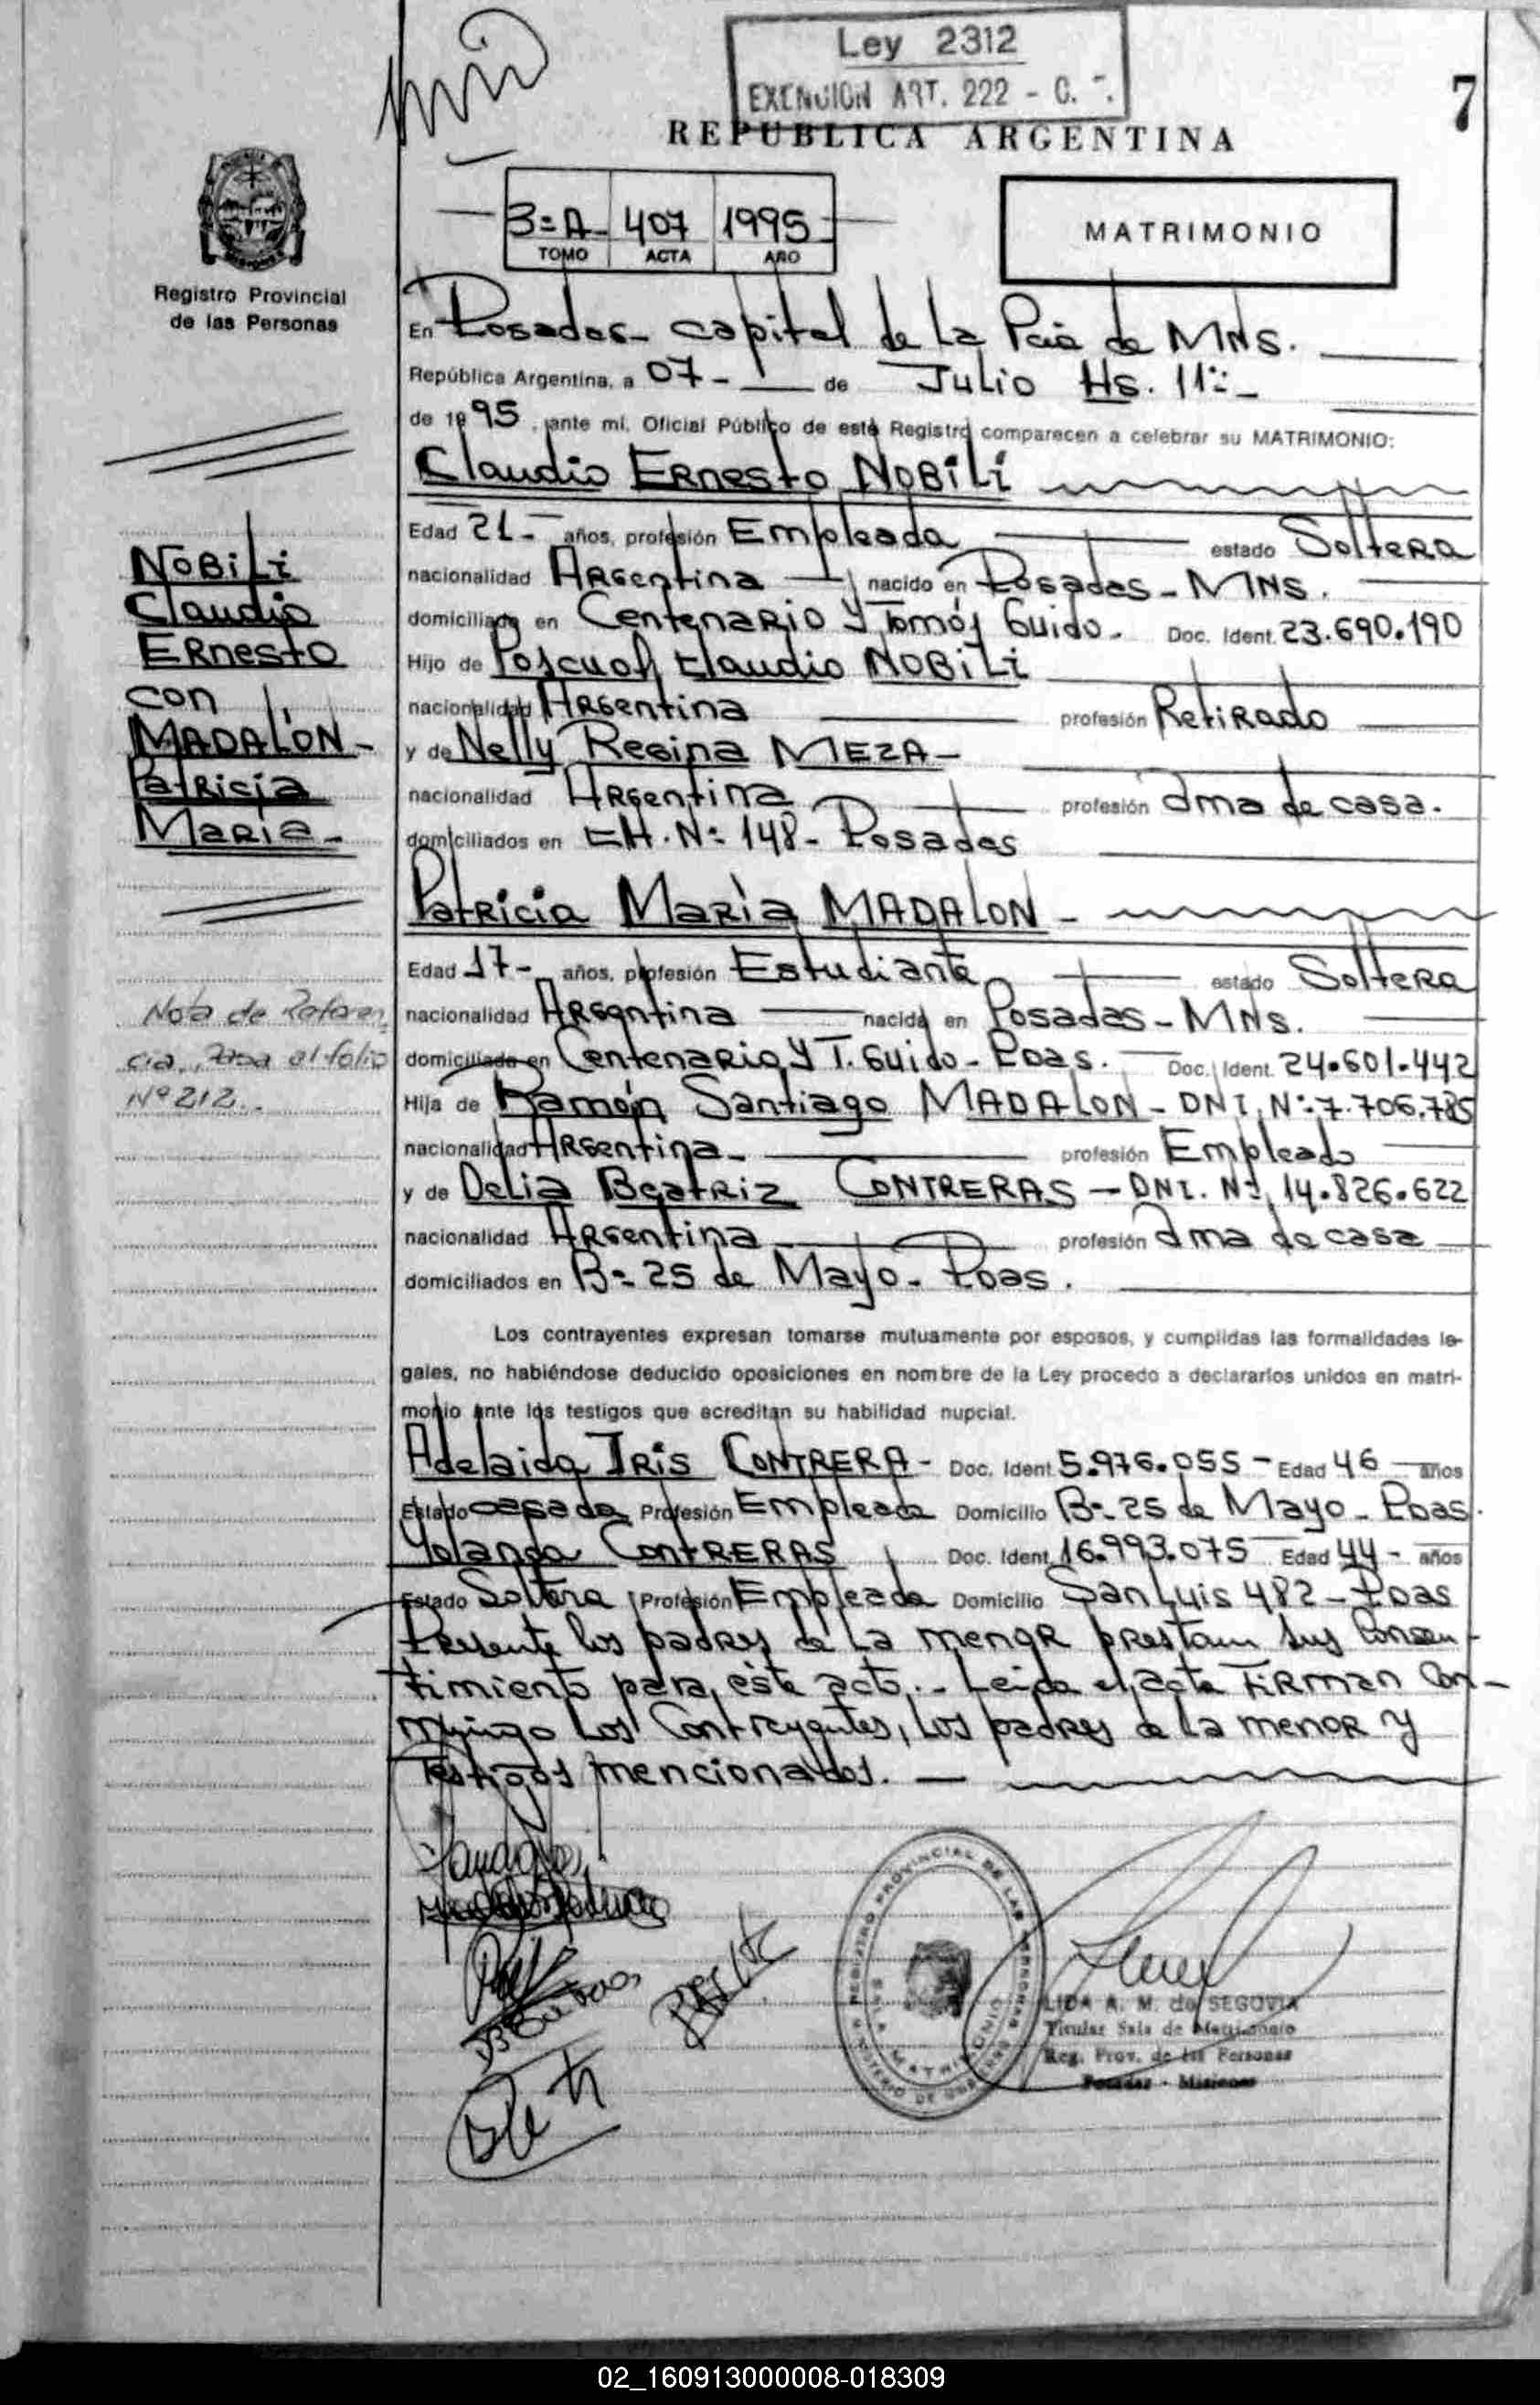 Ley 2312
EXENCION ART. 222 - C.
7
REPUBLICA ARGENTINA
3=A- 407 1995
TOMO ACTA AÑO
MATRIMONIO
Registro Provincial
de las Personas
En Posadas- capital de la Pcia de MNS.
República Argentina, a 07- de Julio Hs. 11
de 1995, ante mi, Oficial Público de este Registro comparecen a celebrar su MATRIMONIO:
Claudio ERnesto NOBiLi
Edad 21- años, profesión Empleada estado SolteRa
nacionalidad ARGentina nacido en Posadas- MNS.
domiciliado en CentenaRio Y Tomás Guido- Doc. Ident. 23.690.190
Hijo de Pascual Claudio NOBiLi
nacionalidad ARGentina profesión RetiRado
y de Nelly Regina MEZA-
nacionalidad ARGentina profesión ama de casa.
domiciliados en CH. Nº 148- Posadas
PatRicia María MADALON-
Edad 17- años, profesión Estudiante estado SolteRa
nacionalidad ARGentina nacida en Posadas- MNS.
domiciliada en CentenaRio Y T. Guido- Pdas. Doc. Ident. 24.601.442
Hija de Ramón Santiago MADALON- DNI. Nº 7.706.785
nacionalidad ARGentina- profesión Empleado
y de Delia BeatRiz CONTRERAS- DNI. Nº 14.826.622
nacionalidad ARGentina profesión ama de casa
domiciliados en Bº 25 de Mayo- Pdas.
Los contrayentes expresan tomarse mutuamente por esposos, y cumplidas las formalidades le-
gales, no habiéndose deducido oposiciones en nombre de la Ley procedo a declararlos unidos en matri-
monio ante los testigos que acreditan su habilidad nupcial.
Adelaida IRis CONTRERA- Doc. Ident. 5.976.055- Edad 46 años
Estado casada Profesión Empleada Domicilio Bº 25 de Mayo- Pdas.
Yolanda CONTRERAS Doc. Ident. 16.993.075 Edad 44- años
Estado Soltera Profesión Empleada Domicilio San Luis 482- Pdas
Presente los padres de la menoR prestam sus Consen-
timiento para, éste acto,.- Leida el acta FiRman Con-
migo Los Contrayentes, los padres de la menoR y
Testigos mencionados.
NOBiLi
Claudio
ERnesto
con
MADALON-
PatRicia
MaRia-
Nota de Referen
cia, Pasa al folio
Nº 212.
REGISTRO PROVINCIAL DE LAS PERSONAS
MATRIMONIO
LIDA A. M. de SEGOVIA
Titular Sala de Matrimonio
Reg. Prov. de las Personas
Posadas - Misiones
02_160913000008-018309